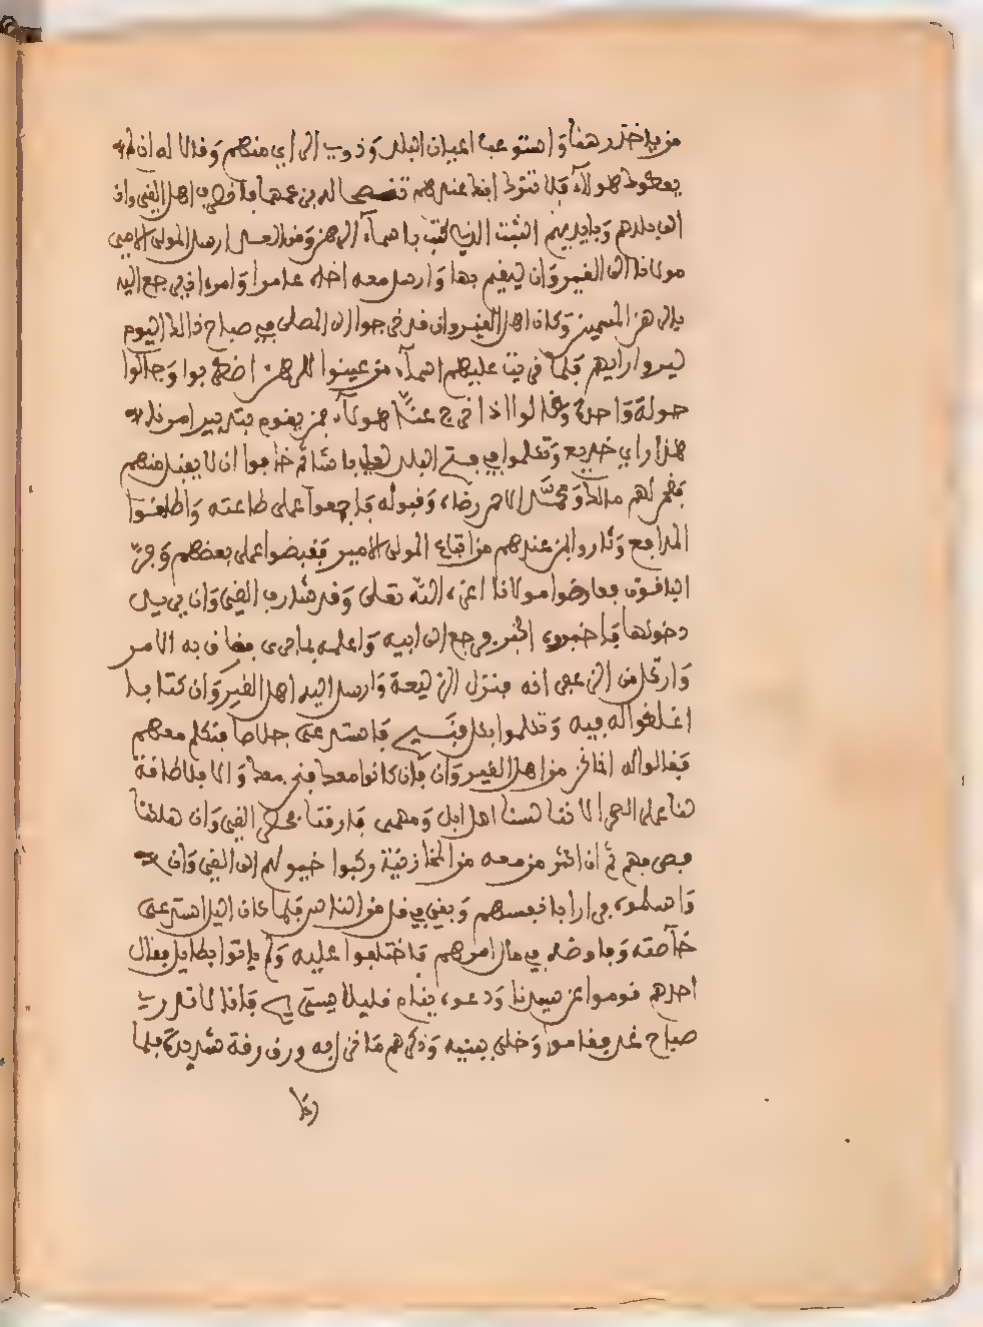 من ياخذ رهنا واستوعب اعيان البلد وذوي الراي منهم وقال له ان لم
يعطوك هولاء فلا تترك ايضا عندهم
الى بلدهم وبايديهم الثبت الذي كتب باسماء الرهن وفي العسل ارسل المولى الامير
مولانا الى القيروان ليقيم بها وارسل معه اخاه عامرا وامره ان يرجع اليه
بالرهن المعينين وكان اهل القيروان قد خرجوا الى المصلى في صباح ذالك اليوم
ليروا رايهم فلما قريت عليهم اسماء من عينوا للرهن اضطربوا وجالوا
جولة واحدة وقالوا اذا خرج عنا هولاء فمن يقوم بتدبير امرنا
هذا راي خديع وتكلموا في فتح البلد لعلي باشا ثم خافوا ان لا يقبل منهم
فضمن لهم مالك ومحمد الاحمر رضاه وقبوله فاجمعوا على طاعته واطلقوا
المدافع وثاروا بمن عندهم من اتباع المولى الامير فقبضوا على بعضهم وفر
الباقون فعارضوا مولانا اعزه الله تعلى وقد شارف القيروان يريد
دخولها فاخبروه الخبر فرجع الى ابيه واعلمه بما جرى فضاق به الامر
وارتحل من الى انه فنزل الزليعة وارسل اليه اهل القيروان كتابا
اغلظوا له فيه وتكلموا بكل قبيح فاسترعى جلاصا فتكلم معهم
فقالوا له انما نحن من اهل القيروان فان كانوا معك فنحن معك والا فلا طاقة
لنا على الحرب لاننا لسنا اهل ابل ومهمى فارقنا القيروان هلكنا
فصرفهم ثم ان اكثر من معه من المخازنية ركبوا خيولهم الى القيروان
واسلموه فرارا بانفسهم وبقي في قل من الناس فلما كان اليل استرعى
خاصته وفاوضهم في مال امرهم فاختلفوا عليه ولم ياتوا بطايل فقال
احدهم قوموا عن سيدنا ودعوه ينام قليلا يستريح فانا لا ندري
صباح غد فقاموا وخلى ببنيه وذكرهم ما نزل به ورق رقة شديدة فلما